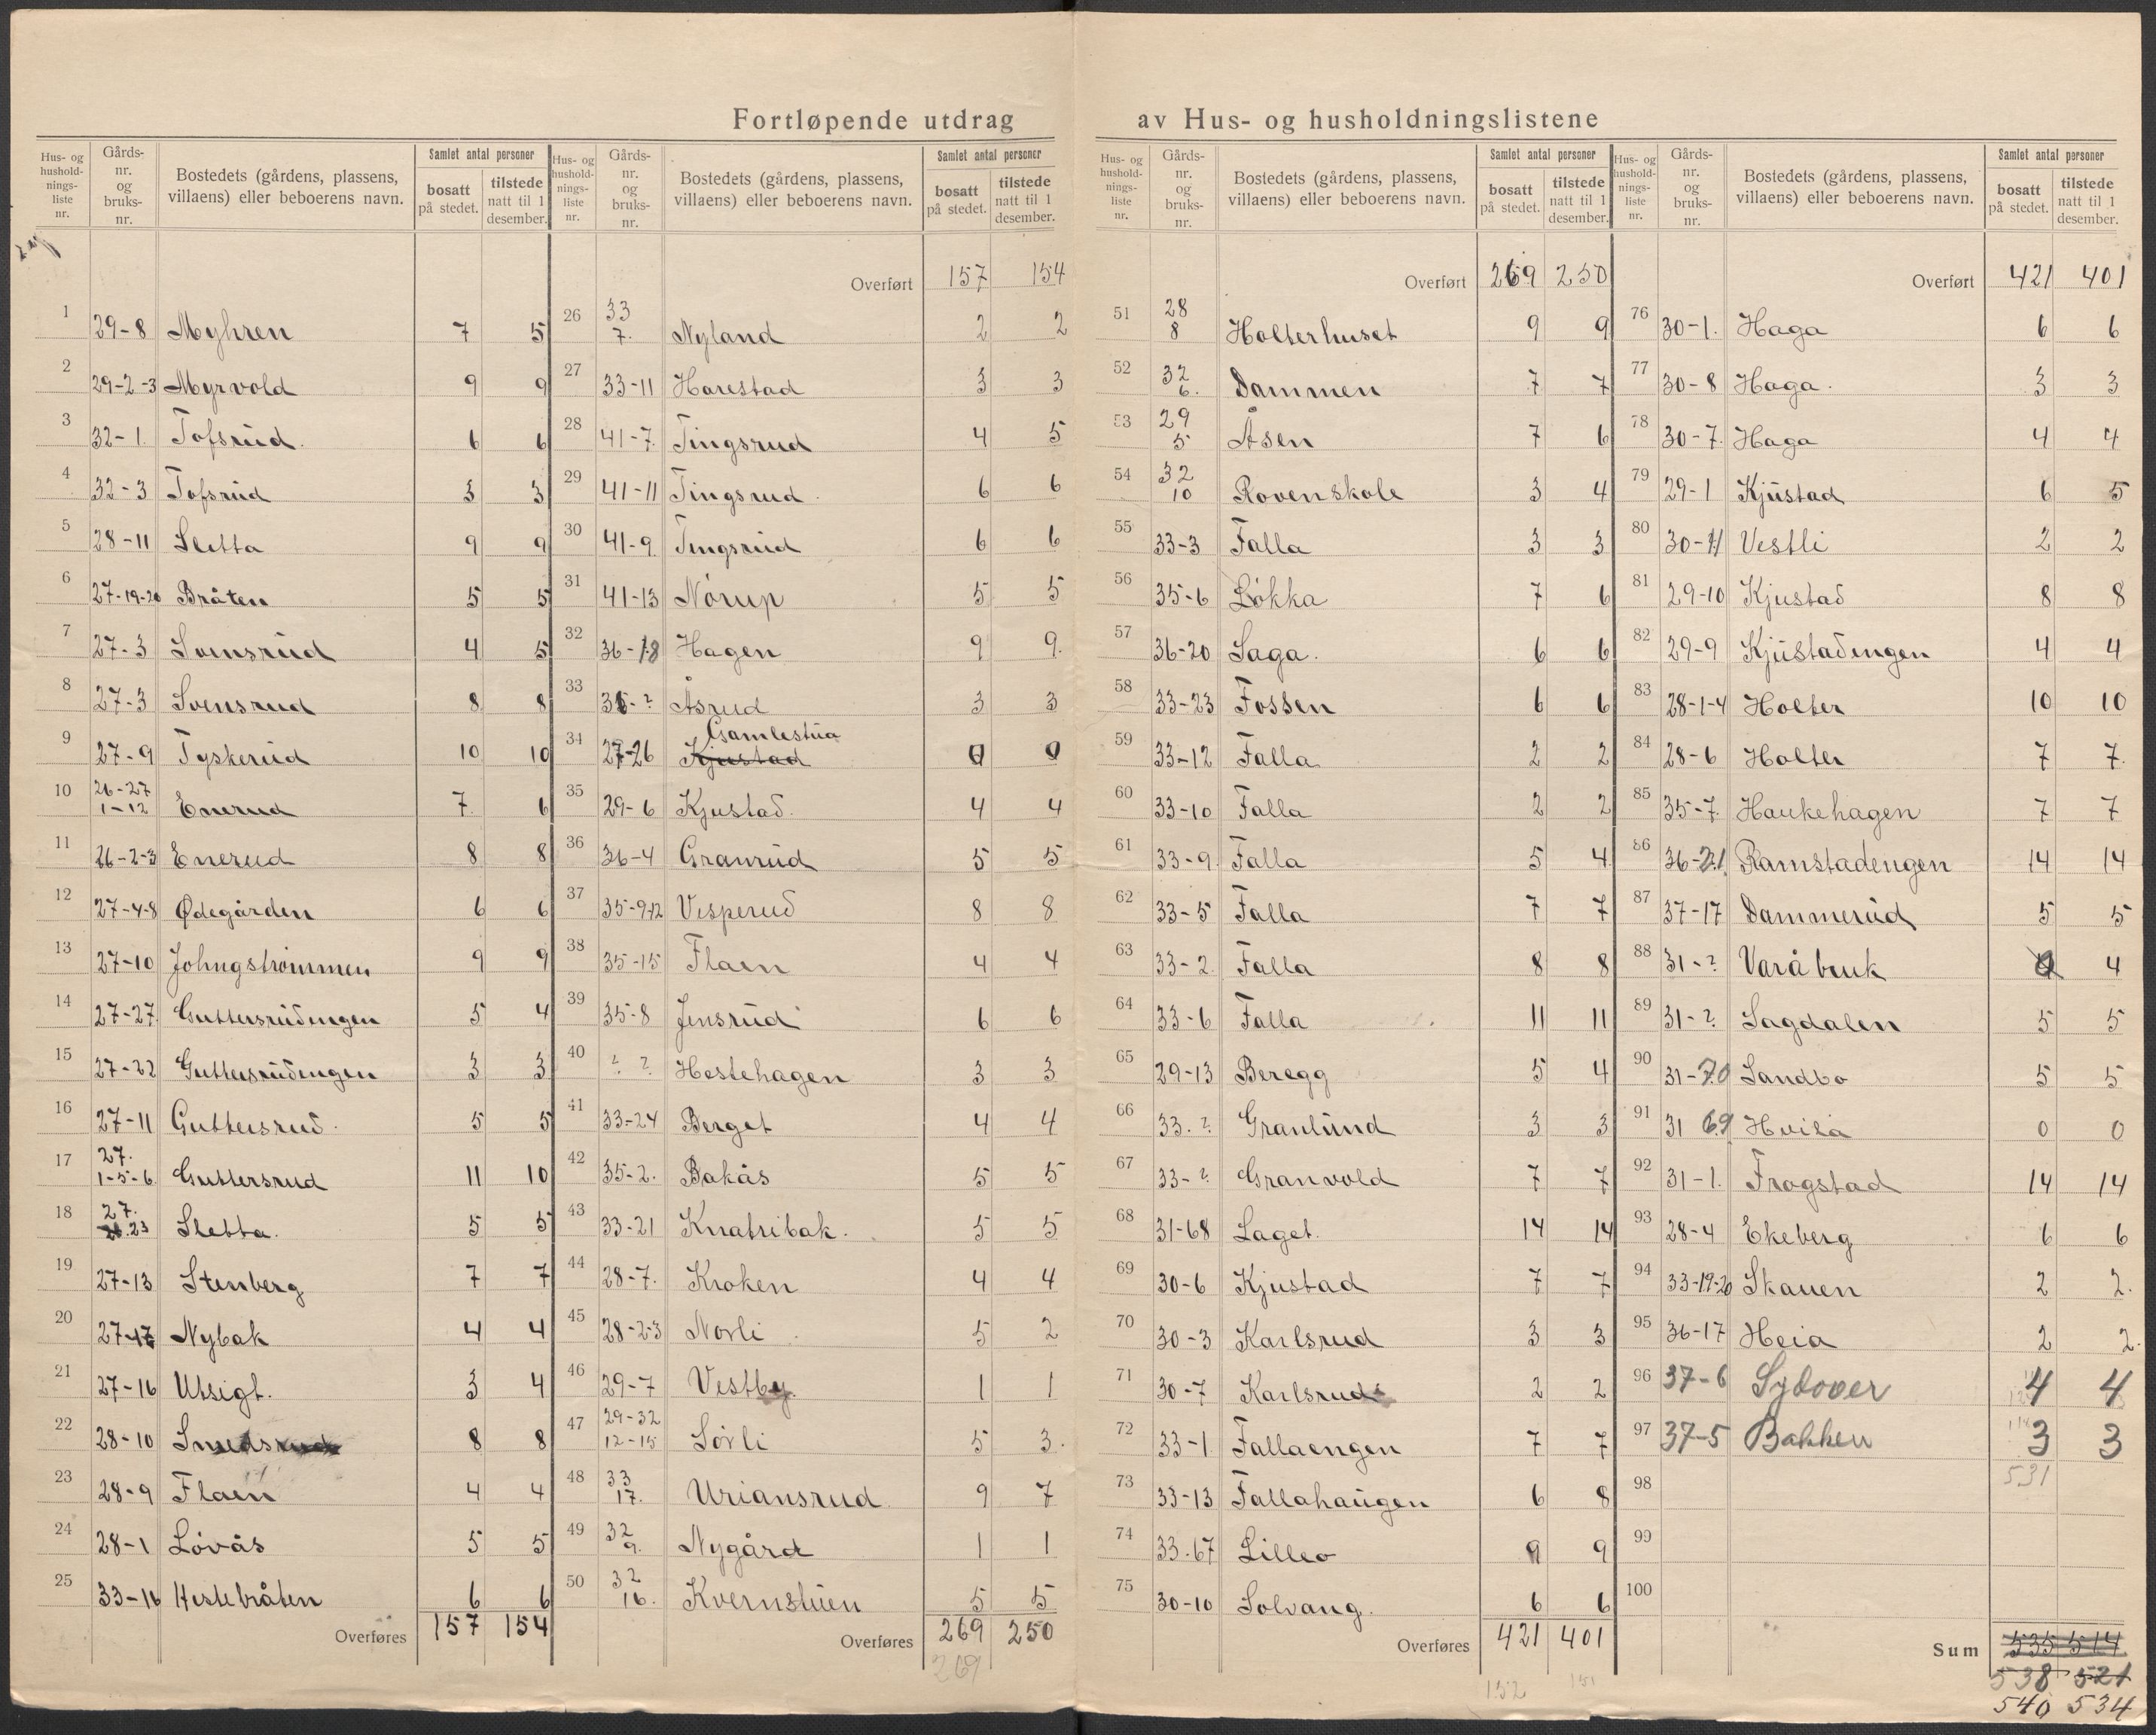 Fortløpende utdrag av Hus- og husholdningslistene
Hus- og hushold-nings-liste nr. Gårds-nr. og bruks-nr. Bostedets (gårdens, plassens, villaens) eller beboerens navn. Samlet antal personer bosatt på stedet. tilstede natt til 1 desember.
1 29-8 Myhren 7 5
2 29-2-3 Myrvold 9 9
3 32-1. Tofsrud. 6 6
4 32-3 Tofsrud 3 3
5 28-11 Sletta 9 9
6 27-19-20 Bråten 5 5
7 27-3 Svensrud 4 5
8 27-3 Svensrud 8 8
9 27-9 Tyskerud 10 10
10 26-27 1-12 Enerud 7. 6
11 26-2-3 Enerud 8 8
12 27-4-8 Ødegården 6 6
13 27-10 Johngstrømmen 9 9
14 27-27 Guttersrudengen 5 4
15 27-22 Guttersrudengen 3 3
16 27-11 Guttersrud. 5 5
17 27. 1-5-6 Guttersrud 11 10
18 27. 23 Sletta. 5 5
19 27-13 Stenberg 7 7
20 27-17 Nybak 4 4
21 27-16 Utsigt. 3 4
22 28-10 Smedsrud 8 8
23 28-9 Flaen 4 4
24 28-1 Løvås 5 5
25 33-16 Hestebråten 6 6
Overføres 157 154
Hus- og hushold-nings-liste nr. Gårds-nr. og bruks-nr. Bostedets (gårdens, plassens, villaens) eller beboerens navn. Samlet antal personer bosatt på stedet. tilstede natt til 1 desember.
Overført 157 154
26 33 7. Nyland 2 2
27 33-11 Harestad 3 3
28 41-7. Tingsrud 4 5
29 41-11 Tingsrud. 6 6
30 41-9. Tingsrud 6 6
31 41-13 Nørup 5 5
32 36-18 Hagen 9 9.
33 36-? Åsrud 3 3
34 27-26 Gamlestua Kjustad 0 0
35 29-6 Kjustad. 4 4
36 36-4 Granrud 5 5
37 35-9-12 Visperud 8 8
38 35-15 Flaen 4 4
39 35-8 Jensrud 6 6
40 ? ? Hestehagen 3 3
41 33-24 Berget 4 4
42 35-2. Bakås 5 5
43 33-21 Knatribak. 5 5
44 28-7. Kroken 4 4
45 28-2-3 Norli 5 2
46 29-7 Vestby. 1 1
47 29-32 12-15 Sørli 5 3.
48 33 17. Uriansrud 9 7
49 32 9. Nygård 1 1
50 32 16. Kvernstuen 5 5
Overføres 269 250
269
Hus- og hushold-nings-liste nr. Gårds-nr. og bruks-nr. Bostedets (gårdens, plassens, villaens) eller beboerens navn. Samlet antal personer bosatt på stedet. tilstede natt til 1 desember.
Overført 269 250
51 28 8 Holterhuset 9 9
52 32 6. Dammen 7 7
53 29 5 Åsen 7 6
54 32 10 Roven skole 3 4
55 33-3 Falla 3 3
56 35-6 Løkka 7 6
57 36-20 Saga. 6 6
58 33-23 Fossen 6 6
59 33-12 Falla 2 2
60 33-10 Falla 2 2
61 33-9 Falla 5 4
62 33-5 Falla 7 7
63 33-2. Falla 8 8
64 33-6 Falla 11 11
65 29-13 Beregg 5 4
66 33.? Granlund 3 3
67 33-? Granvold 7 7
68 31-68 Laget. 14 14
69 30-6 Kjustad 7 7
70 30-3 Karlsrud 3 3
71 30-7 Karlsrud 2 2
72 33-1 Fallaengen 7 7
73 33-13 Fallahaugen 6 8
74 33-67 Lilleo 9 9
75 30-10 Solvang. 6 6
Overføres 421 401
152 151
Hus- og hushold-nings-liste nr. Gårds-nr. og bruks-nr. Bostedets (gårdens, plassens, villaens) eller beboerens navn. Samlet antal personer bosatt på stedet. tilstede natt til 1 desember.
Overført 421 401
76 30-1. Haga 6 6
77 30-8 Haga. 3 3
78 30-7. Haga 4 4
79 29-1 Kjustad 6 5
80 30-11 Vestli 2 2
81 29-10 Kjustad 8 8
82 29-9 Kjustadengen 4 4
83 28-1-4 Holter 10 10
84 28-6 Holter 7 7.
85 35-7. Haukehagen 7 7
86 36-21 Ramstadengen 14 14
87 37-17 Dammerud 5 5
88 31-? Varåbruk 4
89 31-? Sagdalen 5 5
90 31-70 Sandbo 5 5
91 31 69 Hvila 0 0
92 31-1. Frogstad 14 14
93 28-4 Ekeberg 6 6
94 33-19-20 Skauen 2 2.
95 36-17 Heia 2 2.
96 37-6 Sydover 4 4
97 37-5 Bakken 3 3
98 531
99
100
Sum 535 514
538 521
540 534